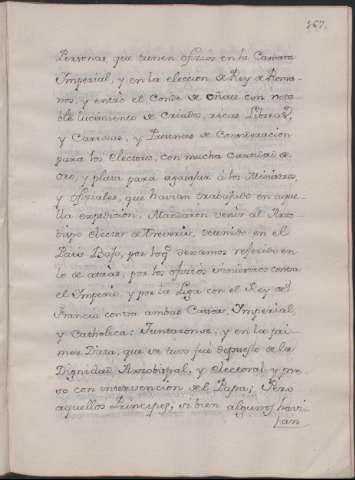 367.
Personas que tienen oficios en la Camara
Imperial, y en la eleccion de Rey de Roma-
nos, y entrò el Conde de Oñate con nota-
ble lucimiento de Criados, ricas Libreas,
y Carrozas, y Presentes de Consideracion
para los Electores, con mucha cantidad de
oro, y plata para agasajar à los Ministros,
y oficiales, que havian trabajado en aque-
lla expedicion. Mandaron venir al Arzo-
bispo elector de Treveris, retenido en el
Pais Bajo, por loq.e dexamos referido en
lo de atras, por los oficios enemigos contra
el Imperio, y por la Liga con el Rey de
Francia contra ambas Casas, Imperial,
y Catholica: Juntaronse, y en la pri-
mer Dieta, que se tuvo fuè depuesto de la
Dignidad Arzobispal, y electoral y pre-
so con intervencion del Papa; Pero
aquellos Principes, si bien algunos havi-
han